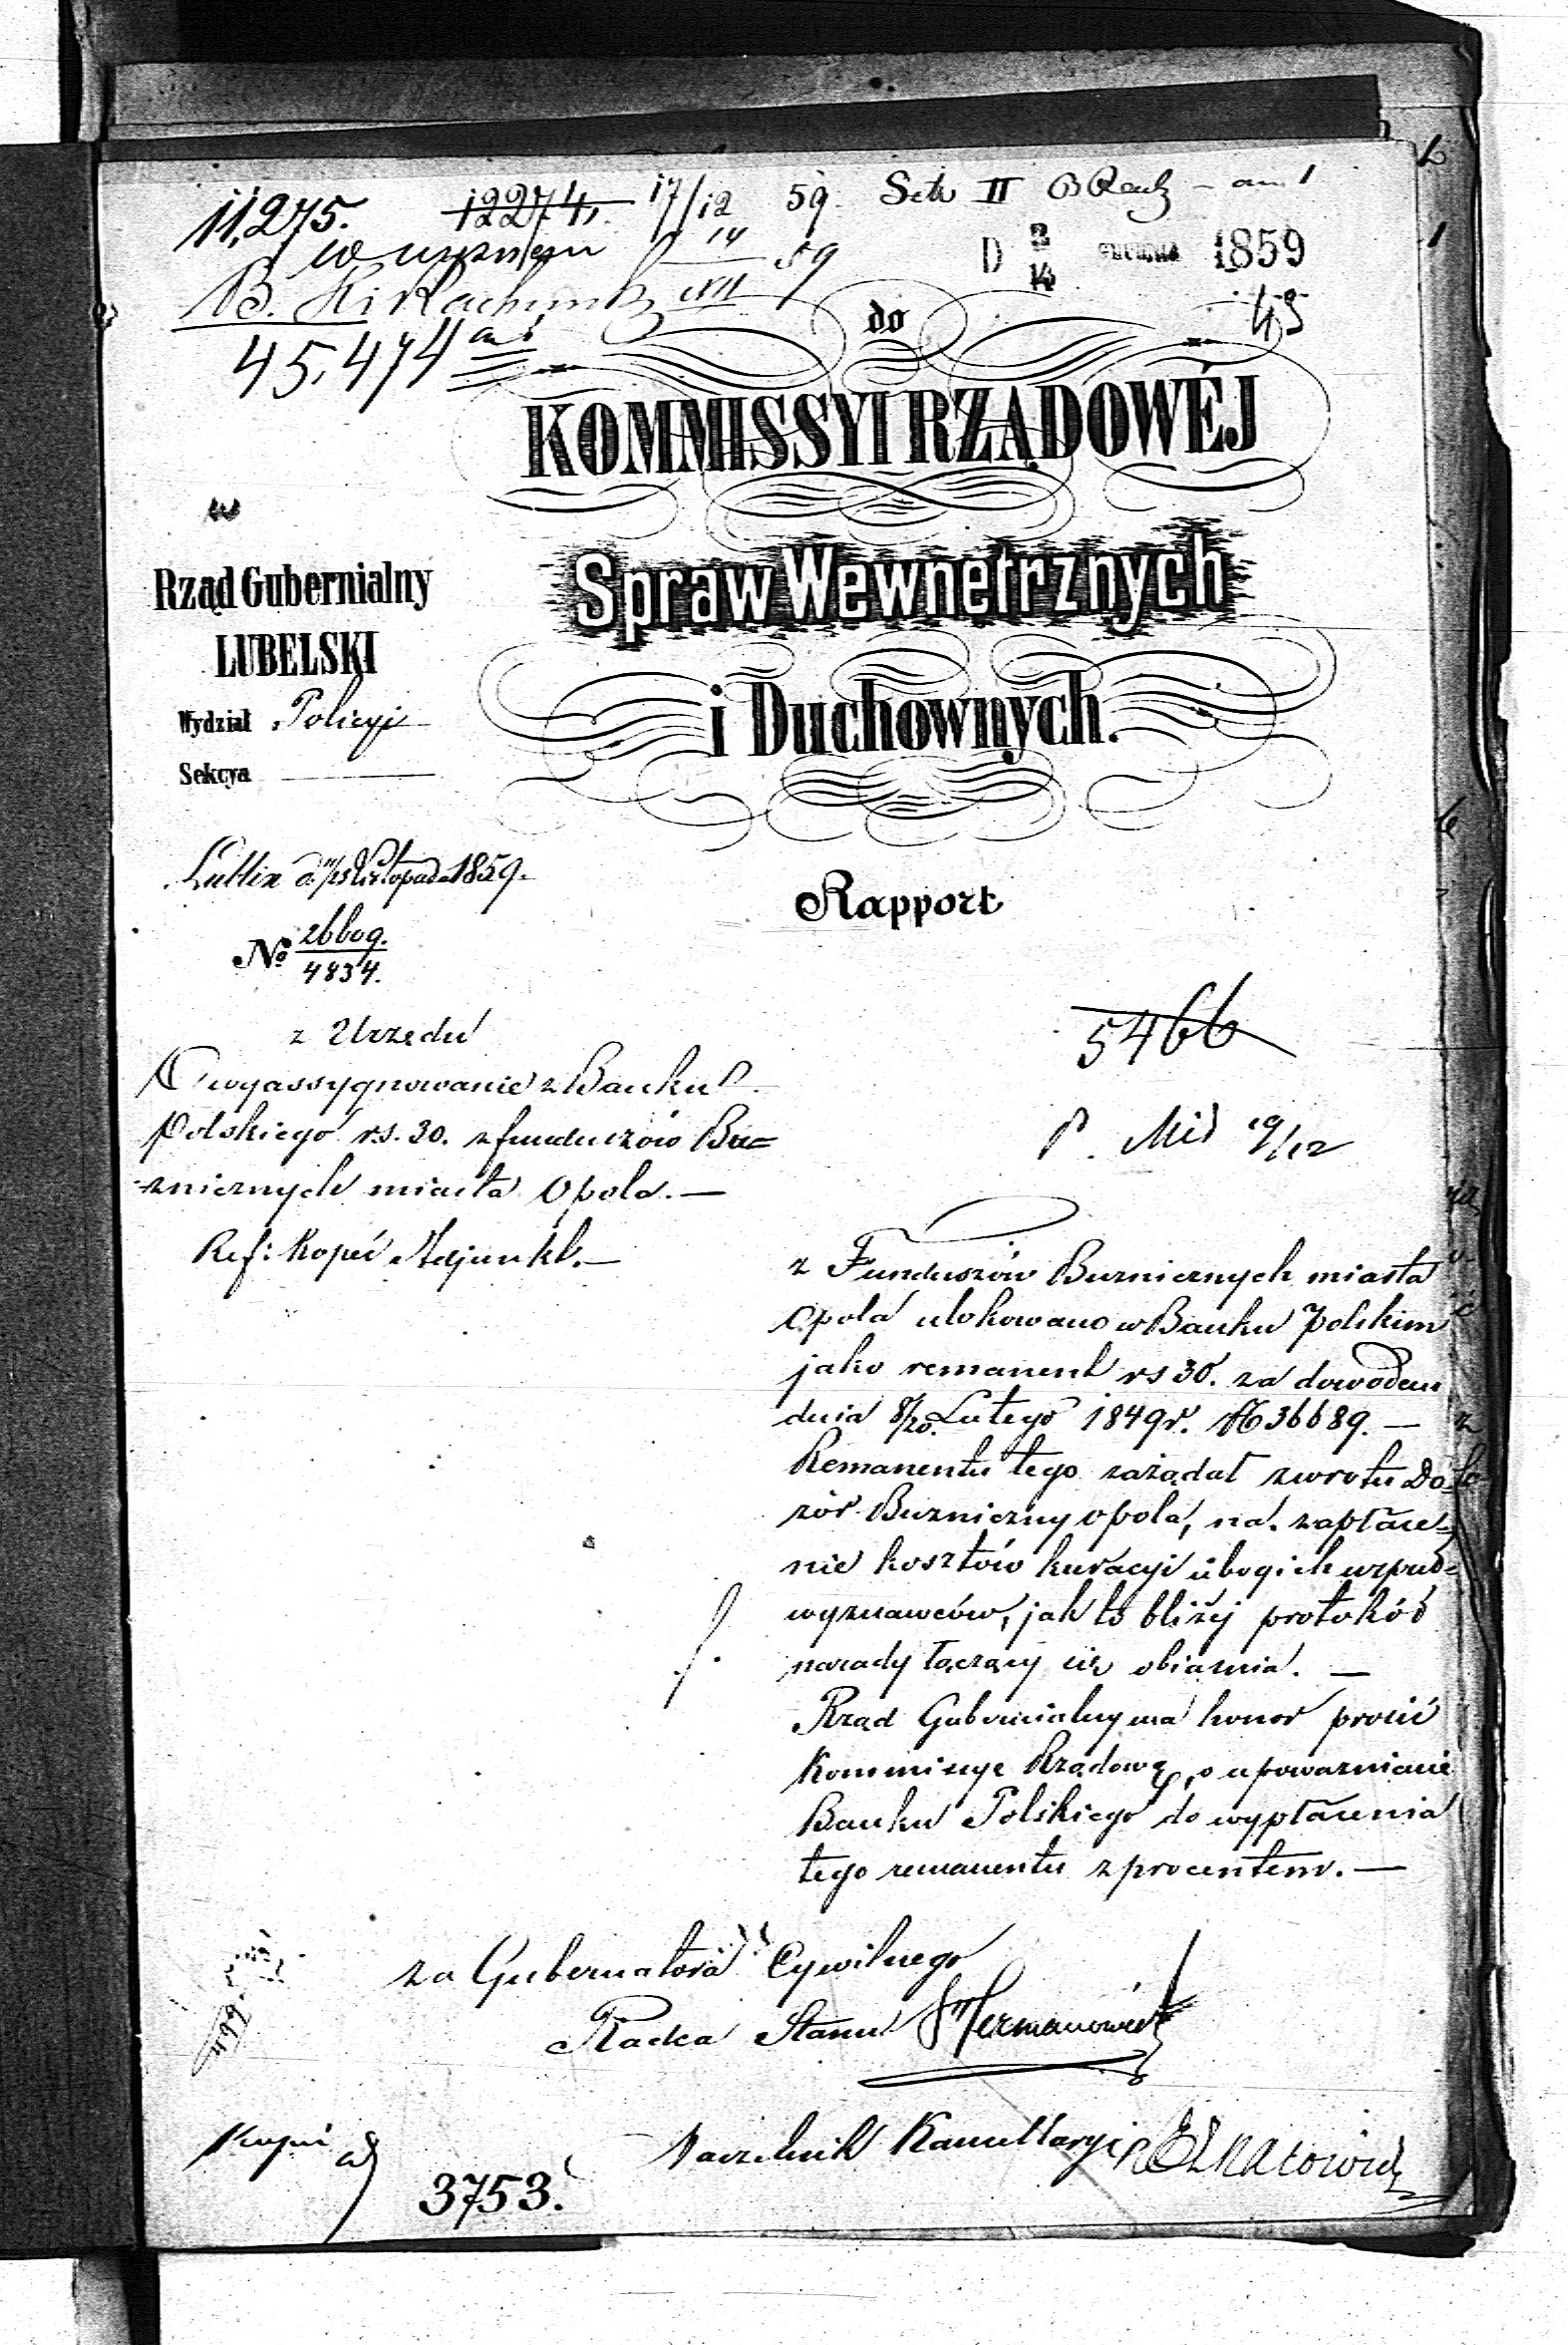 11,275. 12274. 17/12 59. II
D 2/14 1859
w
14/XII 59
B.
45,474
do
KOMMISSYI RZĄDOWÉJ
Spraw Wewnętrznych
i Duchownych.
Rząd Gubernialny
LUBELSKI
Wydział Policyi
Sekcya
Lublin d. Listopada 1859.
Rapport
№ 26609.
4834.
5466
z Urzędu
O wyassygnowanie z Banku
Polskiego rs. 30. z funduszów Bu=
źnicznych miasta Opola. —
Ref: Kopeć Adjunkt. —
P. 19/12
z Funduszów Buźnicznych miasta
Opola ulokowano w Banku Polskim
jako remanent rs 30. za dowodem
dnia 8/20. Lutego 1849 r. № 36689. —
Remanentu tego zażądał zwrotu Do=
zór Buźniczny Opola, na zapłace=
nie kosztów kuracyi ubogich współ=
wyznawców, jak to bliżej protokół
narady łączący się objaśnia. —
Rząd Gubernialny ma honor prosić
Kommissyę Rządową, o upoważnienie
Banku Polskiego do wypłacenia
tego remanentu z procentem. —
za Gubernatora Cywilnego
Radca Stanu
Naczelnik Kancellaryi
3753.